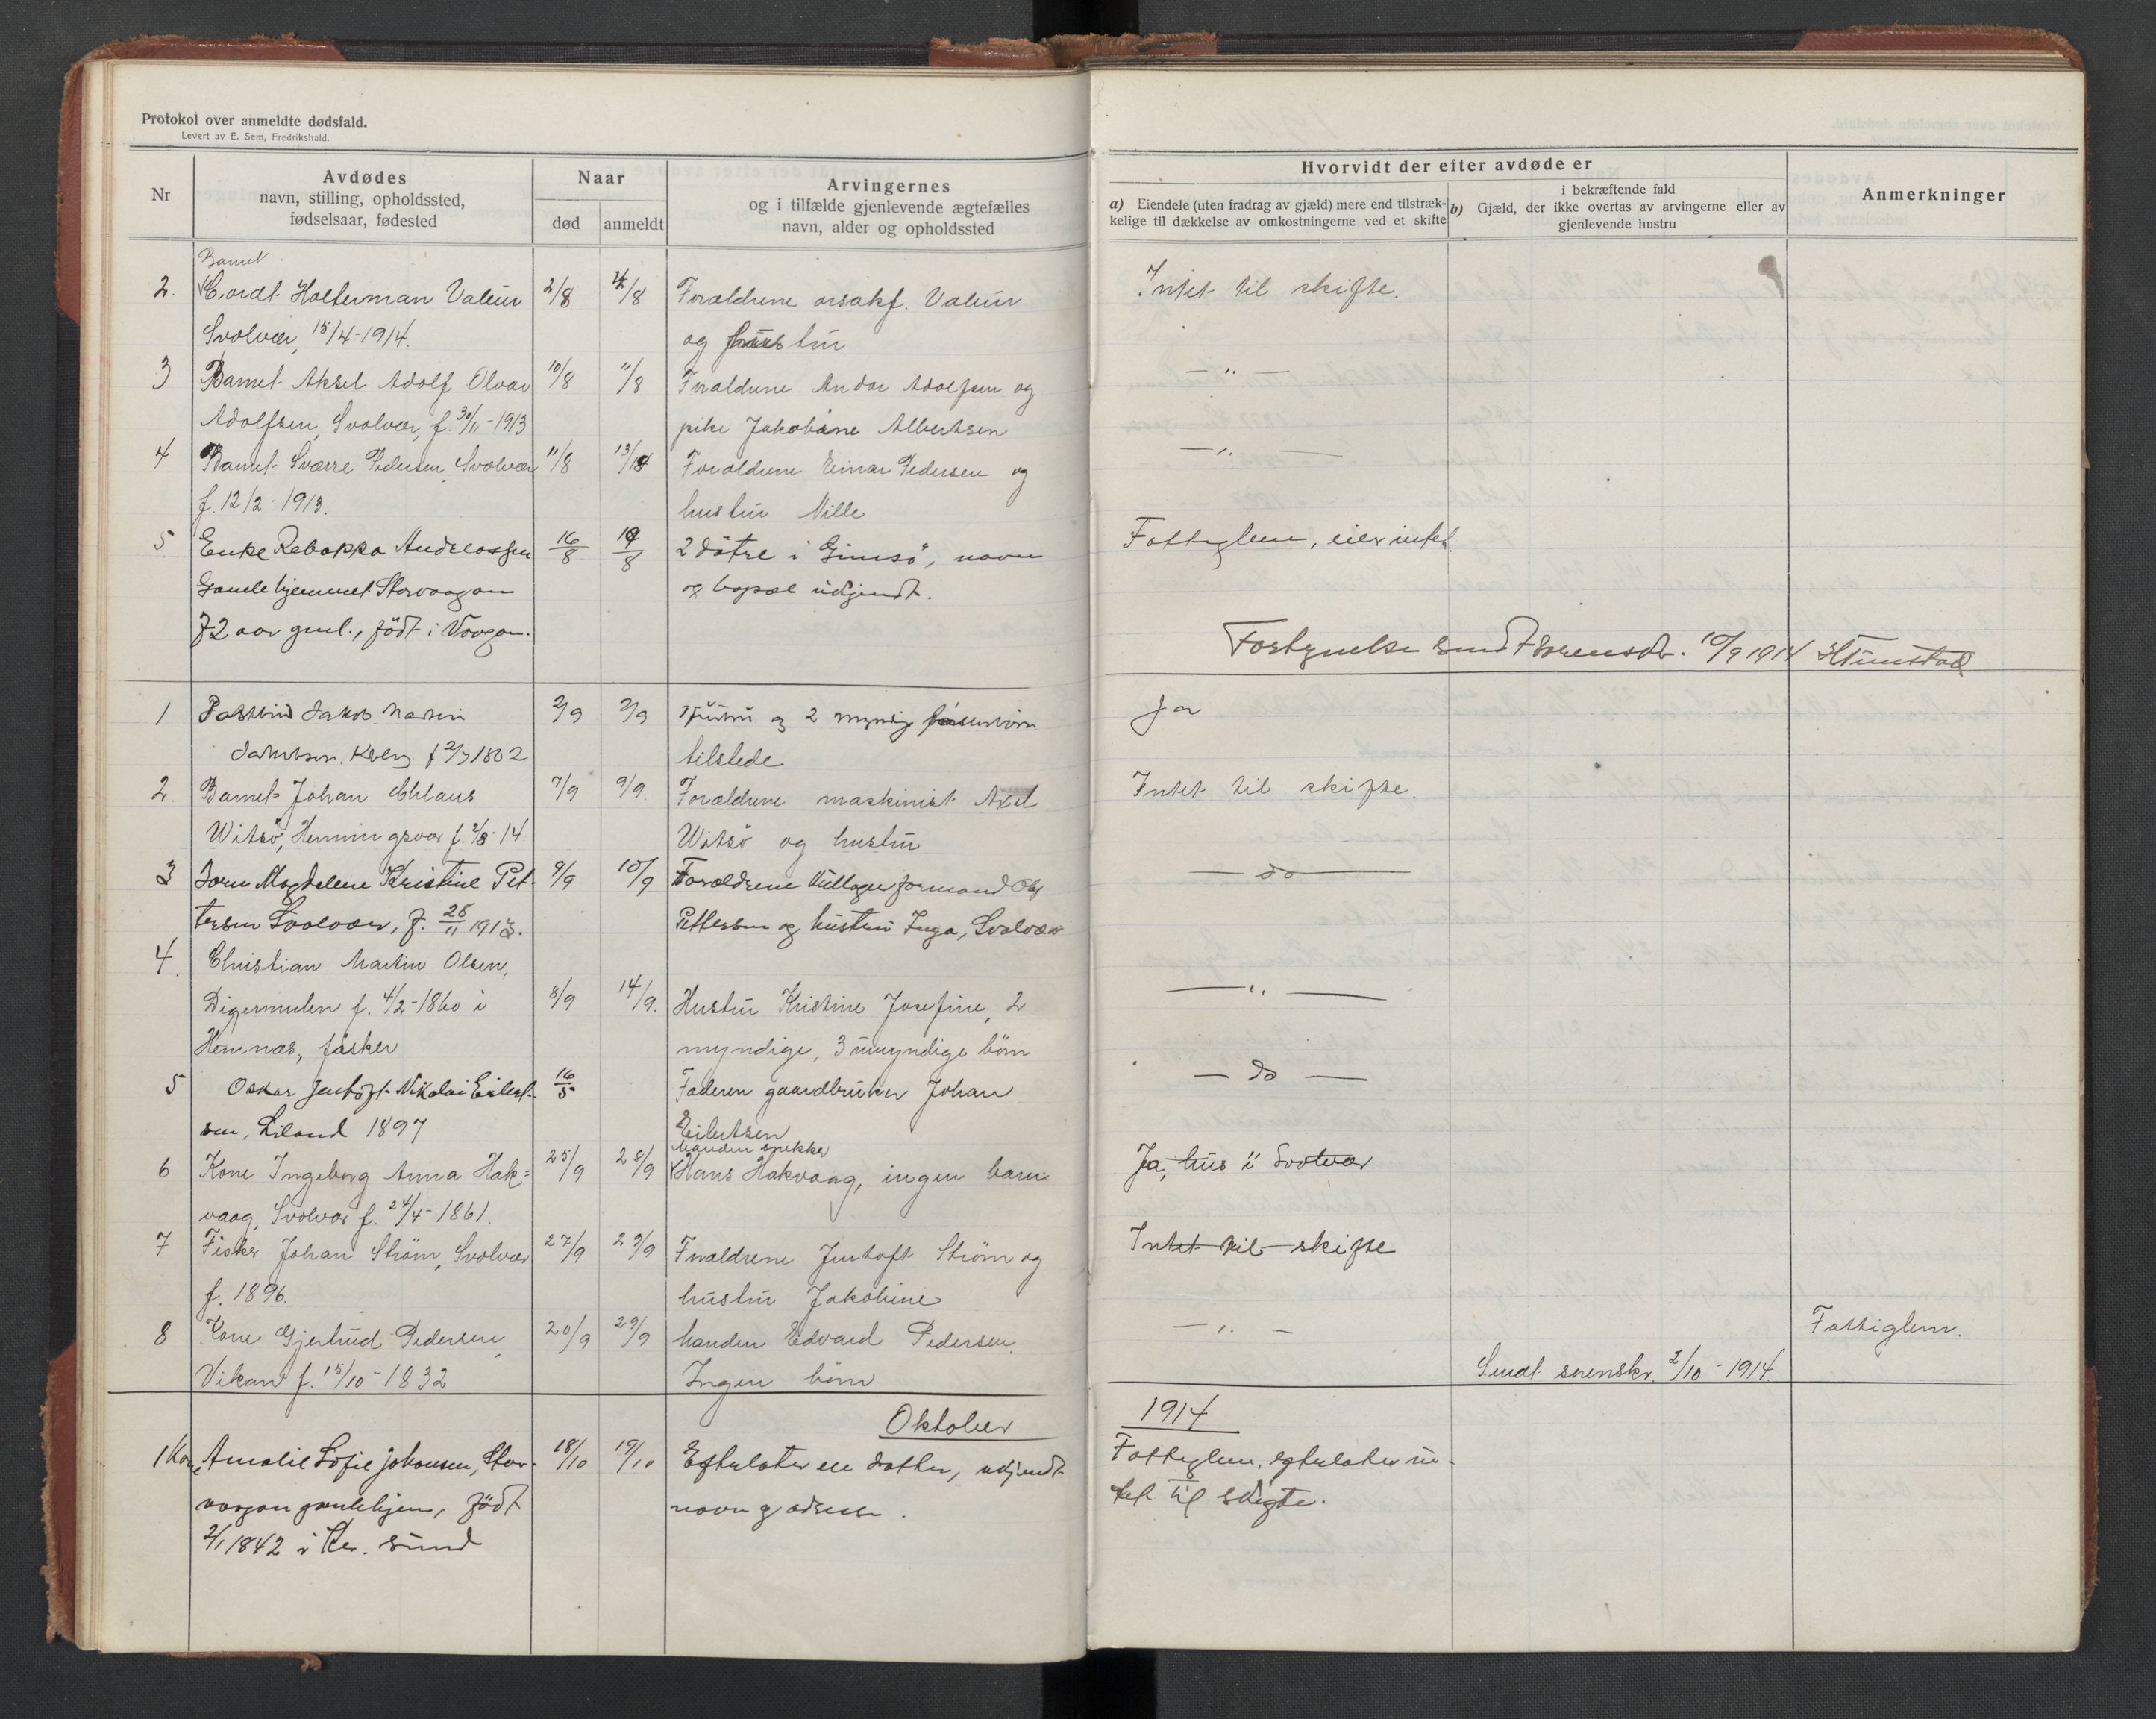 Protokol over anmeldte dødsfald.
Levert av E. Sem, Fredrikshald.
Nr
Avdødes
navn, stilling, opholdssted,
fødselsaar, fødested
Naar
død
anmeldt
Arvingernes
og i tilfælde gjenlevende ægtefælles
navn, alder og opholdssted
Hvorvidt der efter avdøde er
a) Eiendele (uten fradrag av gjæld) mere end tilstræk-
kelige til dækkelse av omkostningerne ved et skifte
i bekræftende fald
b) Gjæld, der ikke overtas av arvingerne eller av
gjenlevende hustru
Anmerkninger
Barnet
2. Cordt Holterman Valeur 2/8 4/8 Forældrene Valeur Intet til skifte.
Svolvær, 15/4-1914. og hustru
3 Barnet Aksel Adolf Olvar 10/8 11/8 Forældrene Andor Adolfsen og — " —
Adolfsen, Svolvær, f. 30/11-1913 pike Jakobine Albertsen
4 Barnet Sværre Pedersen, Svolvær 11/8 13/8 Forældrene Einar Pedersen og — " —
f. 12/2-1913. hustru Nille
5 Enke Rebekka Andreassen 16/8 19/8 2 døtre i Gimsö, navn Fattiglem, eier intet.
Gamlehjemmet Storvaagan og bopæl ukjendt.
72 aar gml., født i Vaagan.
10/9 1914
1 Jakob Martin 2/9 3/9 Hustru og 2 myndige Ja
Jakobsen. f 2/7 1862 tilstede
2. Barnet Johan Chlaus 7/9 9/9. Forældrene maskinist Axel Intet til skifte.
Witsø, Henningsvær f. 2/8-14 Witsø og hustru
3 Magdelene Kristine Pet- 9/9 10/9 Forældrene formand — do —
tersen Svolvær, f. 28/11 1913. Pettersen og hustru Inga, Svolvær
4. Christian Martin Olsen,
Digermulen f. 4/2-1860 i 8/9 14/9. Hustru Kristine Josefine, 2 — " —
Hemnæs, fisker myndige, 3 umyndige børn
5 Oskar Jentoft Nikolai Eilert- 16/5 Faderen gaardbruker Johan — do —
sen, Liland 1897 Eilertsen
Manden snekker
6 Kone Ingeborg Anna Hak= 25/9 28/9 Hans Hakvaag, ingen barn Ja, hus i Svolvær
vaag, Svolvær f. 24/4-1861.
7 Fisker Johan Strøm, Svolvær 27/9 29/9 Forældrene Jentoft Strøm og Intet til skifte
f. 1896. hustru Jakobine
8 Kone Gjertrud Pedersen, 20/9 29/9 Manden Edvard Pedersen. — " — Fattiglem.
Vikan f. 15/10-1832 Ingen børn Sendt sorenskr. 2/10-1914.
Oktober 1914
1 Kone Amalie Sofie Johansen, Stor- 18/10 19/10 Efterlater en datter, ukjendt Fattiglem, efterlater in-
vaagan gamlehjem, født navn og adresse. tet til skifte.
2/1 1842 i Kr. sund